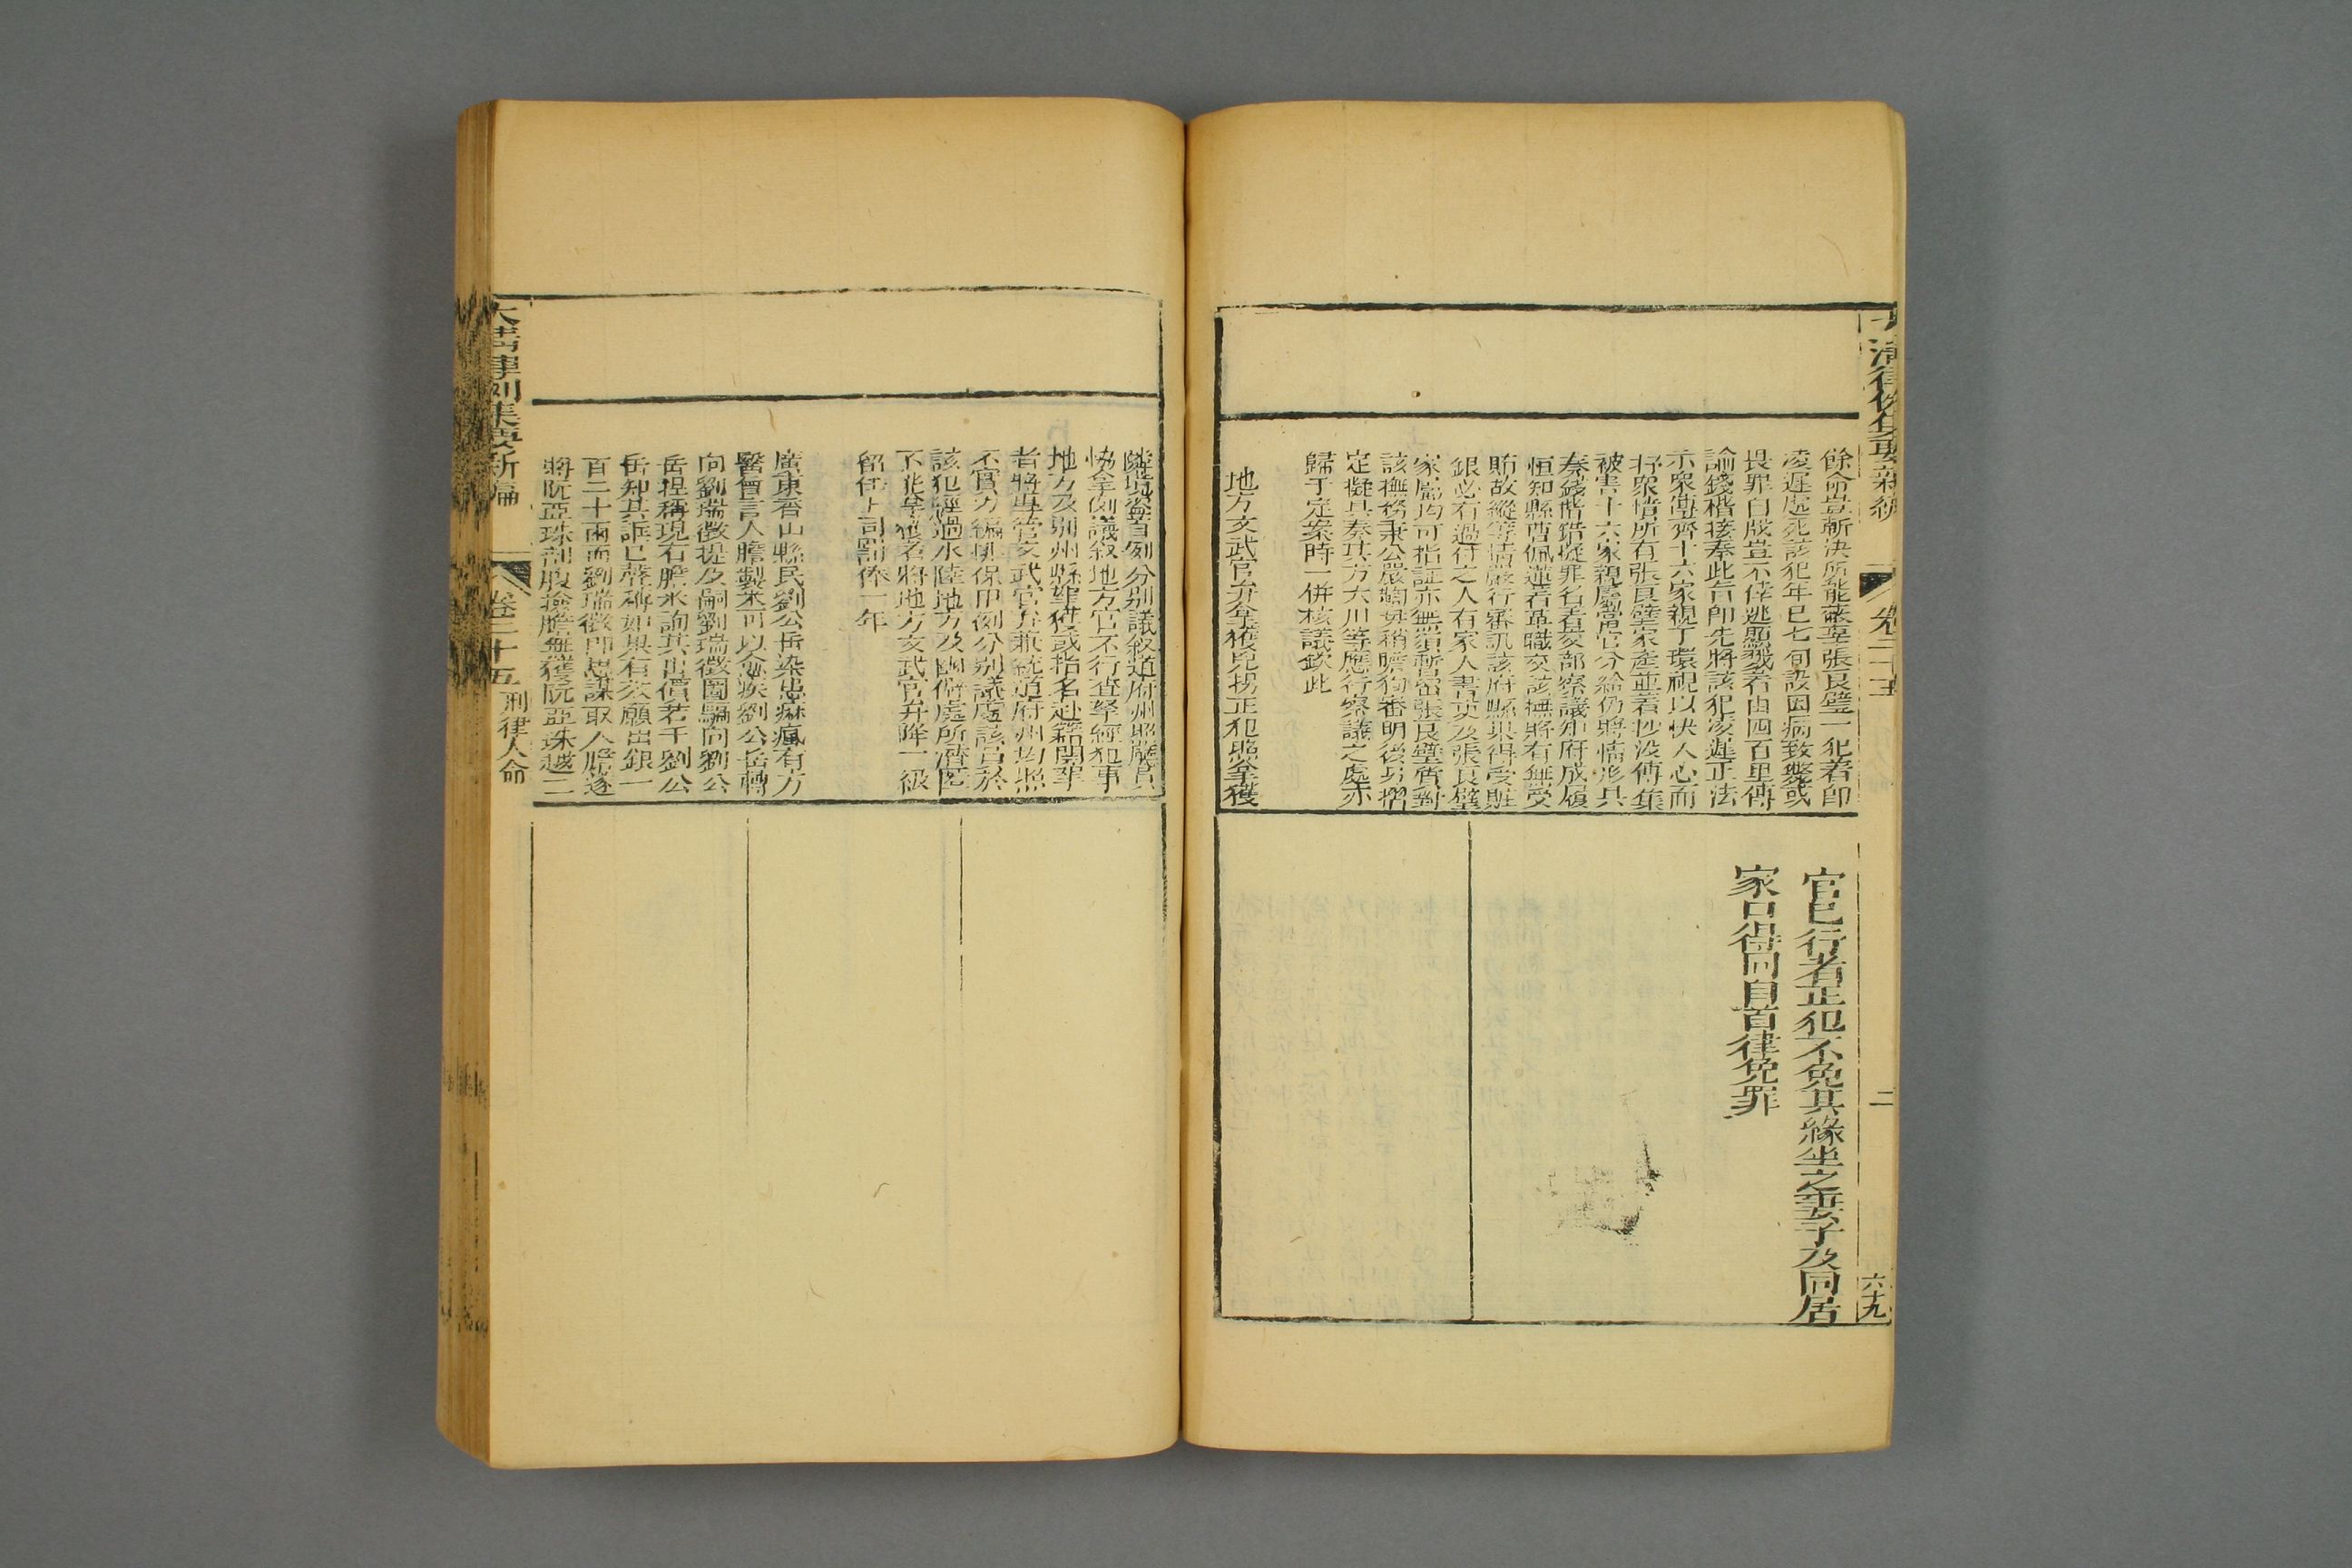 大清律例集要新編
卷二十五
二
六十九
餘命豈斬決所能蔽辜張良璧一犯著即
凌遲處死該犯年已七旬設因病致斃或
畏罪自戕豈不倖逃顯戮著由四百里傳
諭錢楷接奉此旨即先將該犯凌遲正法
示衆傳齊十六家親丁環視以快人心而
抒衆情所有張良璧家產並著抄没傳集
被害十六家親屬當官分給仍將情形具
奏錢楷錯擬罪名著交部察議知府成履
恒知縣曹佩蓮著革職交該撫將有無受
賄故縱等情嚴行審訊該府縣果得受賍
銀必有過付之人有家人書吏及張良璧
家屬均可指証亦無須暫留張良璧質對
該撫務秉公嚴鞫毋稍瞻狥審明後另摺
定擬具奏其方大川等應行察議之處亦
歸于定案時一併核議欽此
地方文武官弁拏獲兇拐正犯照拏獲
官已行者正犯不免其緣坐之妻子及同居
家口得同自首律免罪
鄰境盜首例分别議叙道府州照嚴督
協拿例議叙地方官不行查拏經犯事
地方及别州縣拏獲或指名赴籍關拏
者將專管文武官弁兼統道府州均照
不實力編排保甲例分别議處該官於
該犯經過水陸地方及幽僻處所潛匿
不能拏獲者將地方文武官弁降一級
留任上司罰俸一年
廣東香山縣民劉公岳染患痳瘋有方
醫曾言人膽製米可以愈疾劉公岳轉
向劉瑞徵提及嗣劉瑞徵圖騙向劉公
岳捏稱現有膽米詢其出價若干劉公
岳知其詐已聲稱如果有效願出銀一
百二十兩而劉瑞徵即思謀取人膽遂
將阮亞珠剖腹撿膽無獲阮亞珠越二
大清律例集要新編
卷二十五
刑律人命